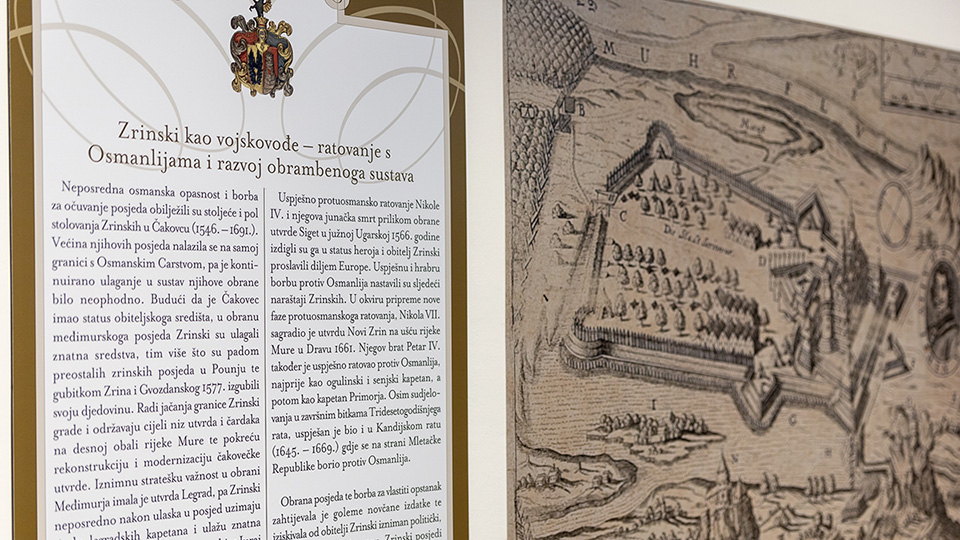 Zrinski kao vojskovođe – ratovanje s
Osmanlijama i razvoj obrambenoga sustava
Neposredna osmanska opasnost i borba
za očuvanje posjeda obilježili su stoljeće i pol
stolovanja Zrinskih u Čakovcu (1546. – 1691.).
Većina njihovih posjeda nalazila se na samoj
granici s Osmanskim Carstvom, pa je konti-
nuirano ulaganje u sustav njihove obrane
bilo neophodno. Budući da je Čakovec
imao status obiteljskoga središta, u obranu
međimurskoga posjeda Zrinski su ulagali
znatna sredstva, tim više što su padom
preostalih zrinskih posjeda u Pounju te
gubitkom Zrina i Gvozdanskog 1577. izgubili
svoju djedovinu. Radi jačanja granice Zrinski
grade i održavaju cijeli niz utvrda i čardaka
na desnoj obali rijeke Mure te pokreću
rekonstrukciju i modernizaciju čakovečke
utvrde. Iznimnu stratešku važnost u obrani
Međimurja imala je utvrda Legrad, pa Zrinski
neposredno nakon ulaska u posjed uzimaju
legradskih kapetana i ulažu znatna
Uspješno protuosmansko ratovanje Nikole
IV. i njegova junačka smrt prilikom obrane
utvrde Siget u južnoj Ugarskoj 1566. godine
izdigli su ga u status heroja i obitelj Zrinski
proslavili diljem Europe. Uspješnu i hrabru
borbu protiv Osmanlija nastavili su sljedeći
naraštaji Zrinskih. U okviru pripreme nove
faze protuosmanskoga ratovanja, Nikola VII.
sagradio je utvrdu Novi Zrin na ušću rijeke
Mure u Dravu 1661. Njegov brat Petar IV.
također je uspješno ratovao protiv Osmanlija,
najprije kao ogulinski i senjski kapetan, a
potom kao kapetan Primorja. Osim sudjelo-
vanja u završnim bitkama Tridesetogodišnjega
rata, uspješan je bio i u Kandijskom ratu
(1645. – 1669.) gdje se na strani Mletačke
Republike borio protiv Osmanlija.
Obrana posjeda te borba za vlastiti opstanak
zahtijevala je goleme novčane izdatke te
iziskivala od obitelji Zrinski izniman politički,
Zrinski posjedi
MUHR FLVV
B
A
C
D
G
I
N
H